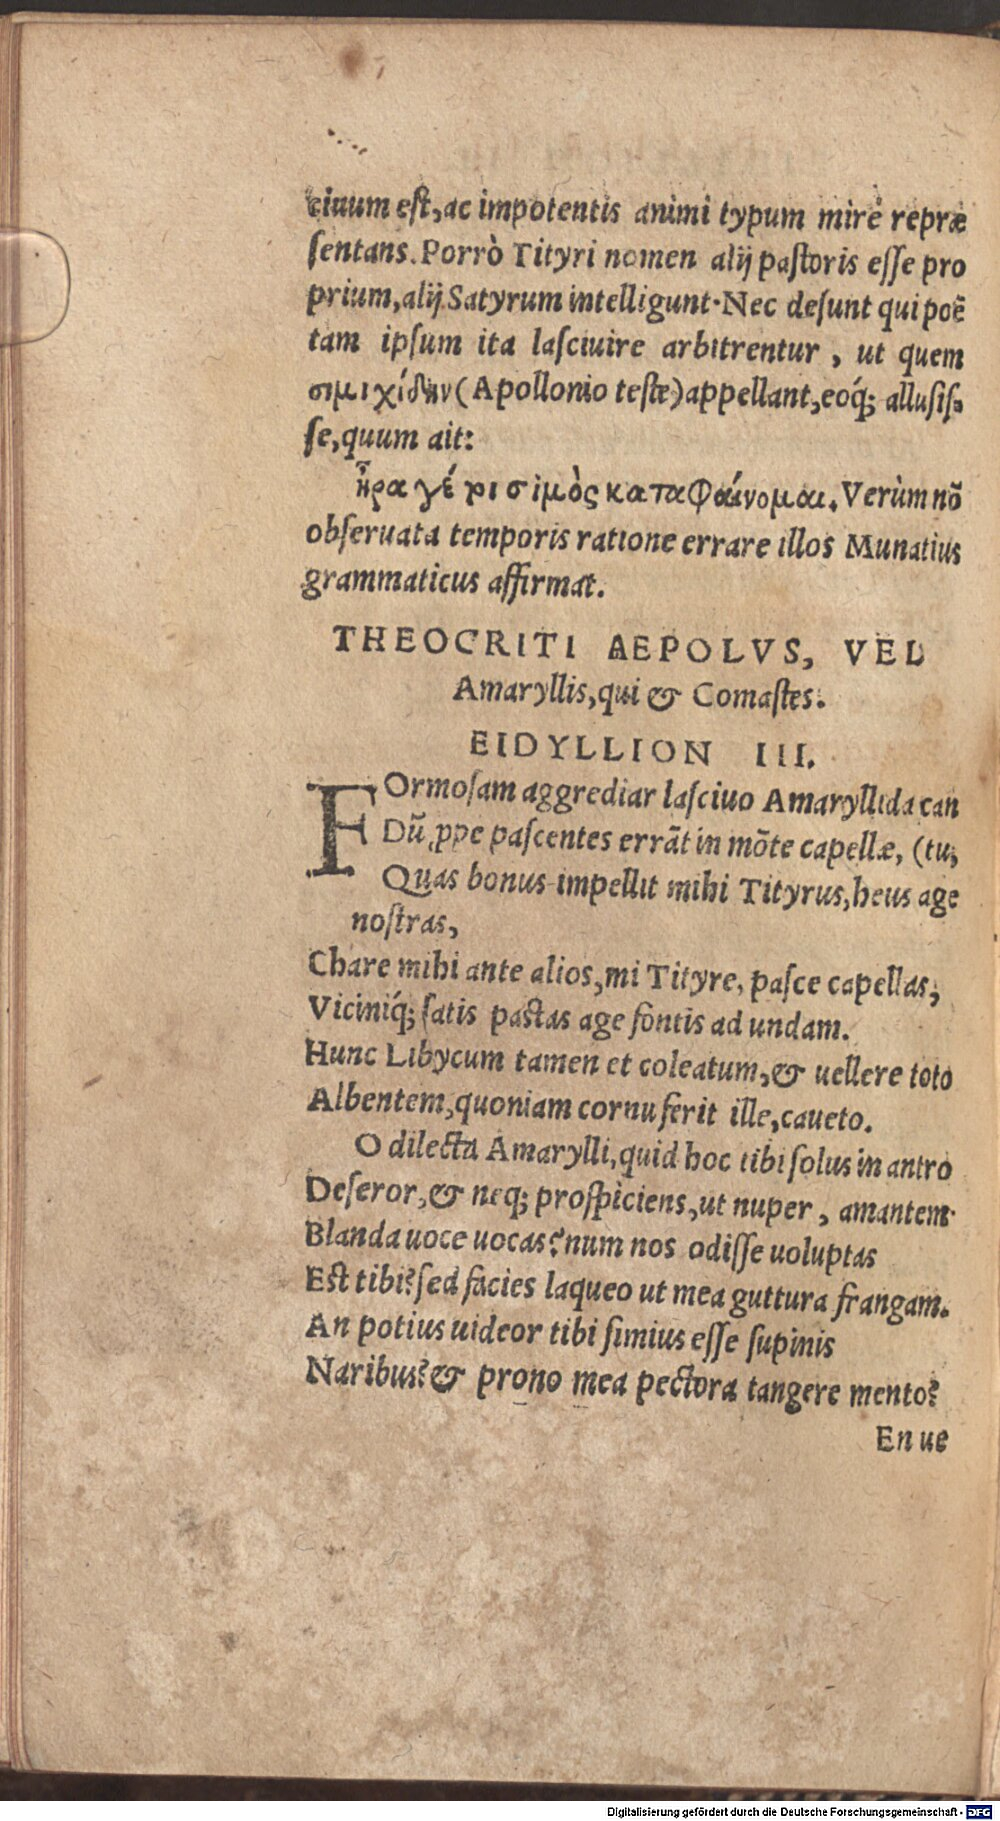 ciuum est, ac impotentis animi typum mirè repræ
sentans. Porrò Tityri nomen alij pastoris esse pro
prium, alij Satyrum intelligunt. Nec desunt qui poë
tam ipsum ita lasciuire arbitrentur, ut quem
σιμιχίδην (Apollonio teste) appellant, eoq́; allusis-
se, quum ait:
ἦρα γέ ρι σιμὸς καταφαίνομαι. Verùm nõ
obseruata temporis ratione errare illos Munatius
grammaticus affirmat.
THEOCRITI AEPOLVS, VEL
Amaryllis, qui & Comastes.
EIDYLLION III.
FOrmosam aggrediar lasciuo Amaryllida can
Dũ ꝓpe pascentes errãt in mõte capellæ, (tu,
Quas bonus impellit mihi Tityrus, heus age
nostras,
Chare mihi ante alios, mi Tityre, pasce capellas,
Viciniq́; satis pastas age fontis ad undam.
Hunc Libycum tamen et coleatum, & uellere toto
Albentem, quoniam cornu ferit ille, caueto.
O dilecta Amarylli, quid hoc tibi solus in antro
Deseror, & neq; prospiciens, ut nuper, amantem
Blanda uoce uocas? num nos odisse uoluptas
Est tibi? sed facies laqueo ut mea guttura frangam.
An potius uideor tibi simius esse supinis
Naribus? & prono mea pectora tangere mento?
En ue
Digitalisierung gefördert durch die Deutsche Forschungsgemeinschaft - DFG